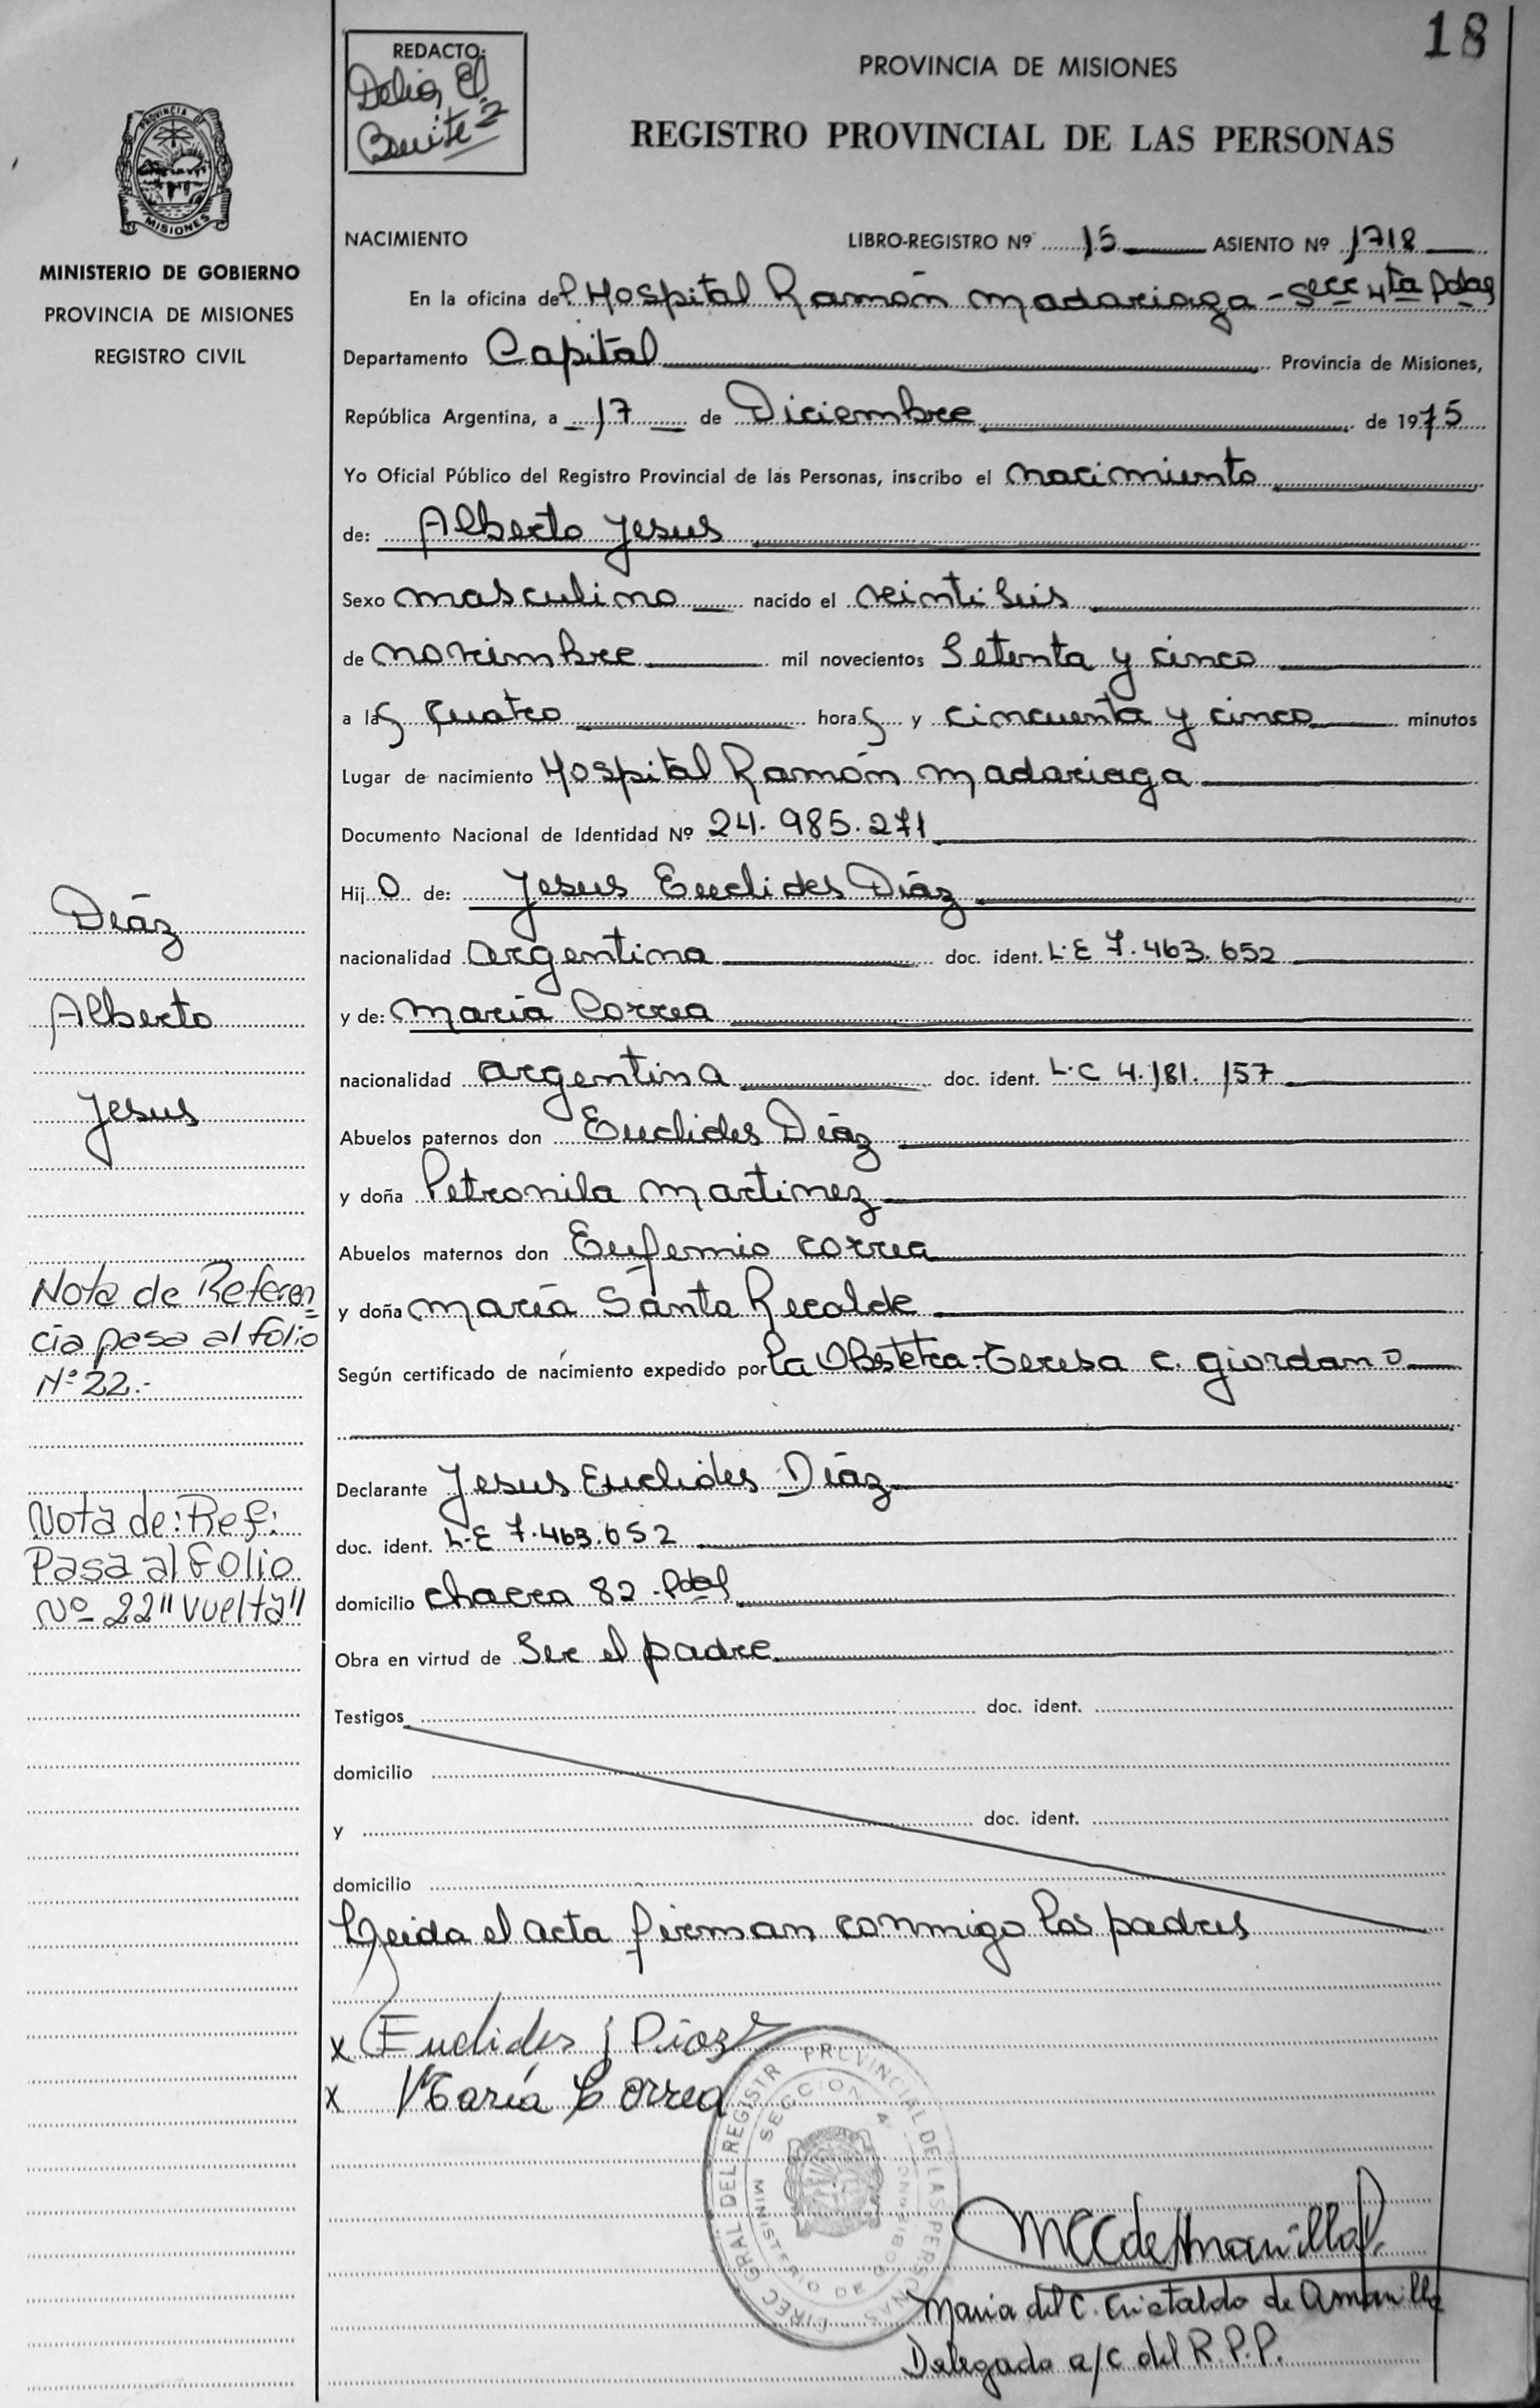 18
REDACTO:
Delia El
Benitez
PROVINCIA DE MISIONES
REGISTRO PROVINCIAL DE LAS PERSONAS
PROVINCIA DE
MISIONES
MINISTERIO DE GOBIERNO
PROVINCIA DE MISIONES
REGISTRO CIVIL
NACIMIENTO LIBRO-REGISTRO Nº 15 ASIENTO Nº 1718
En la oficina del Hospital Ramón Madariaga - Secc 4ta Pdas
Departamento Capital Provincia de Misiones,
República Argentina, a 17 de Diciembre de 1975
Yo Oficial Público del Registro Provincial de las Personas, inscribo el nacimiento
de: Alberto Jesus
Sexo masculino nacido el veinti seis
de noviembre mil novecientos Setenta y cinco
a las cuatro horas y cincuenta y cinco minutos
Lugar de nacimiento Hospital Ramón Madariaga
Documento Nacional de Identidad Nº 24.985.271
Hijo de: Jesus Euclides Díaz
nacionalidad argentina doc. ident. L.E 7.463.652
y de: María Correa
nacionalidad argentina doc. ident. L.C 4.181.157
Abuelos paternos don Euclides Díaz
y doña Petronila Martinez
Abuelos maternos don Eufemio Correa
y doña María Santa Recalde
Según certificado de nacimiento expedido por la Obstetra-Teresa C. Giordano
Declarante Jesus Euclides Díaz
doc. ident. L.E 7.463.652
domicilio chacra 82 - Pdas
Obra en virtud de Ser el padre
Testigos doc. ident.
domicilio
y doc. ident.
domicilio
Leida el acta firman conmigo los padres
x Euclides J Díaz
x María Correa
Díaz
Alberto
Jesus
Nota de Referen=
cia pasa al folio
Nº 22.-
Nota de: Ref:
Pasa al Folio
Nº 22 "vuelta"
DIREC GRAL DEL REGISTR PROVINCIAL DE LAS PERSONAS
SECCION 4º
MINISTERIO DE GOBIERNO
MCCdeAmarilla
Maria del C. Cristaldo de Amarilla
Delegada a/c del R.P.P.